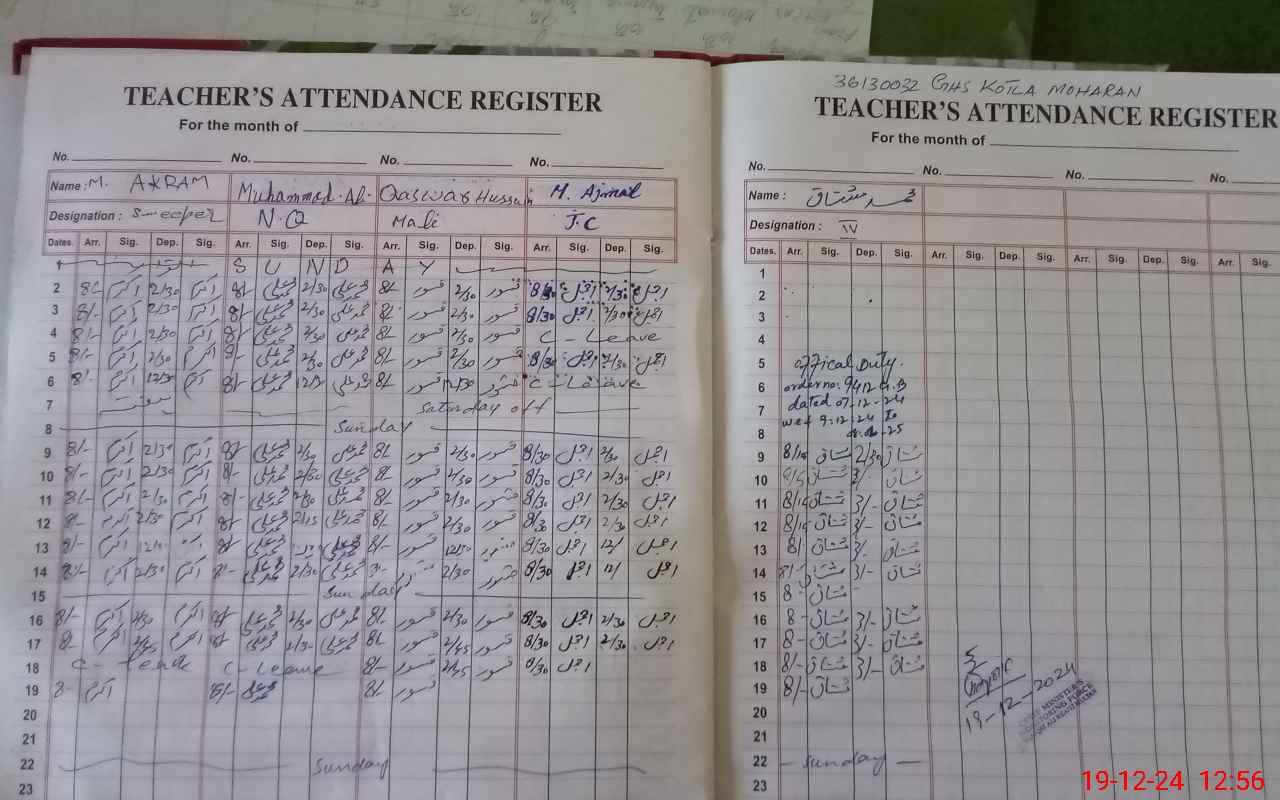 36130032 GHS KOTLA MOHARAN
TEACHER'S ATTENDANCE REGISTER
For the month of
No. No. No. No.
Name : M. AKRAM Muhammad Ali Qaswar Hussain M. Ajmal
Designation : Sweeper N.Q Mali J.C
Dates. Arr. Sig. Dep. Sig. Arr. Sig. Dep. Sig. Arr. Sig. Dep. Sig. Arr. Sig. Dep. Sig.
1 S U N D A Y
2 8/- اکرم 2/30 اکرم 8/- محمد علی 2/30 محمد علی 8/- قسور 2/30 قسور 8/30 اجمل 2/30 اجمل
3 8/- اکرم 2/30 اکرم 8/- محمد علی 2/30 محمد علی 8/- قسور 2/30 قسور 8/30 اجمل 2/30 اجمل
4 8/- اکرم 2/30 اکرم 8/- محمد علی 2/30 محمد علی 8/- قسور 2/30 قسور C - Leave
5 8/- اکرم 2/30 اکرم 8/- محمد علی 2/30 محمد علی 8/- قسور 2/30 قسور 8/30 اجمل 2/30 اجمل
6 8/- اکرم 12/30 اکرم 8/- محمد علی محمد علی 8/- قسور 12/30 قسور C - Leave
7 Saturday off
8 Sunday
9 8/- اکرم 2/30 اکرم 8/- محمد علی 2/30 محمد علی 8/- قسور 2/30 قسور 8/30 اجمل 2/30 اجمل
10 8/- اکرم 2/30 اکرم 8/- محمد علی 2/30 محمد علی 8/- قسور 2/30 قسور 8/30 اجمل 2/30 اجمل
11 8/- اکرم 2/30 اکرم 8/- محمد علی 2/30 محمد علی 8/- قسور 2/30 قسور 8/30 اجمل 2/30 اجمل
12 8/- اکرم 2/30 اکرم 8/- محمد علی 2/15 محمد علی 8/- قسور 2/30 قسور 8/30 اجمل 2/30 اجمل
13 8/- اکرم اکرم 8/- محمد علی محمد علی 8/- قسور 12/30 قسور 8/30 اجمل 12/ اجمل
14 8/- اکرم 2/30 اکرم 8/- محمد علی 2/30 محمد علی قسور 2/30 قسور 8/30 اجمل 12/ اجمل
15 Sunday
16 8/- اکرم 2/30 اکرم 8/- محمد علی 2/30 محمد علی 8/- قسور 2/30 قسور 8/30 اجمل 2/30 اجمل
17 8/- اکرم 2/45 اکرم 8/- محمد علی 2/30 محمد علی 8/- قسور 2/45 قسور 8/30 اجمل 2/30 اجمل
18 C - Leave C - Leave 8/- قسور 2/45 قسور 8/30 اجمل
19 8- اکرم 8/- محمد علی 8/- قسور
20
21
22 Sunday
23
TEACHER'S ATTENDANCE REGISTER
For the month of
No. No. No. No.
Name : محمد مشتاق
Designation : IV
Dates. Arr. Sig. Dep. Sig. Arr. Sig. Dep. Sig. Arr. Sig. Dep. Sig. Arr. Sig.
1
2
3
4
5 offical Duty.
6 order no: 9412 G.B
7 dated 07-12-24
wef 9-12-24 to
8
9 8/15 مشتاق 2/30 مشتاق
10 مشتاق 3/- مشتاق
11 8/15 مشتاق 3/- مشتاق
12 8/15 مشتاق 3/- مشتاق
13 8/ مشتاق 3/- مشتاق
14 8/- مشتاق 3/- مشتاق
15 8- مشتاق
16 8- مشتاق 3/- مشتاق
17 8- مشتاق 3/- مشتاق
18 8/- مشتاق 3/- مشتاق
19 8/- مشتاق
20
21
22 - Sunday -
23
19-12-2024
MONITORING FORCE
19-12-24 12:56